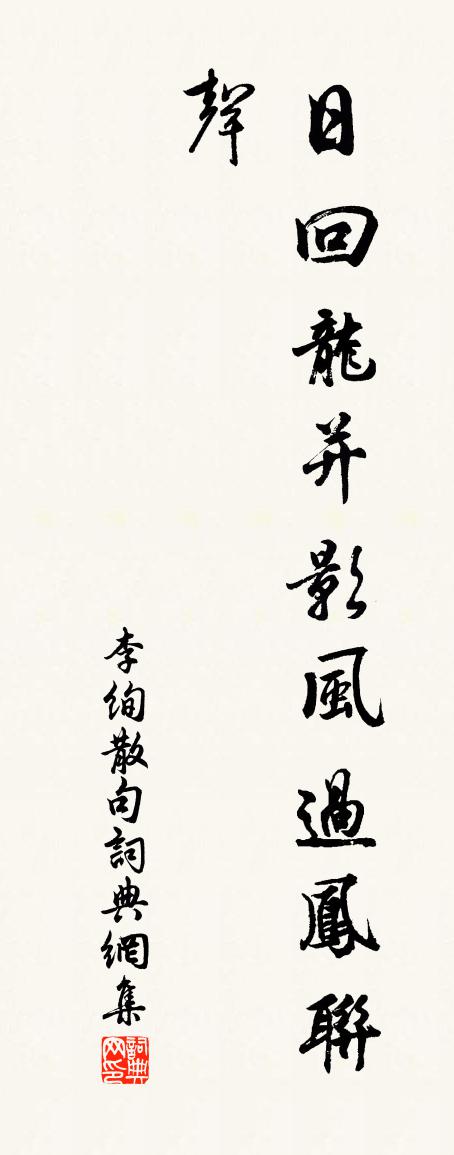 日回龍并影風過鳳聯
聲
李絢散句詞典網集
詞典网印